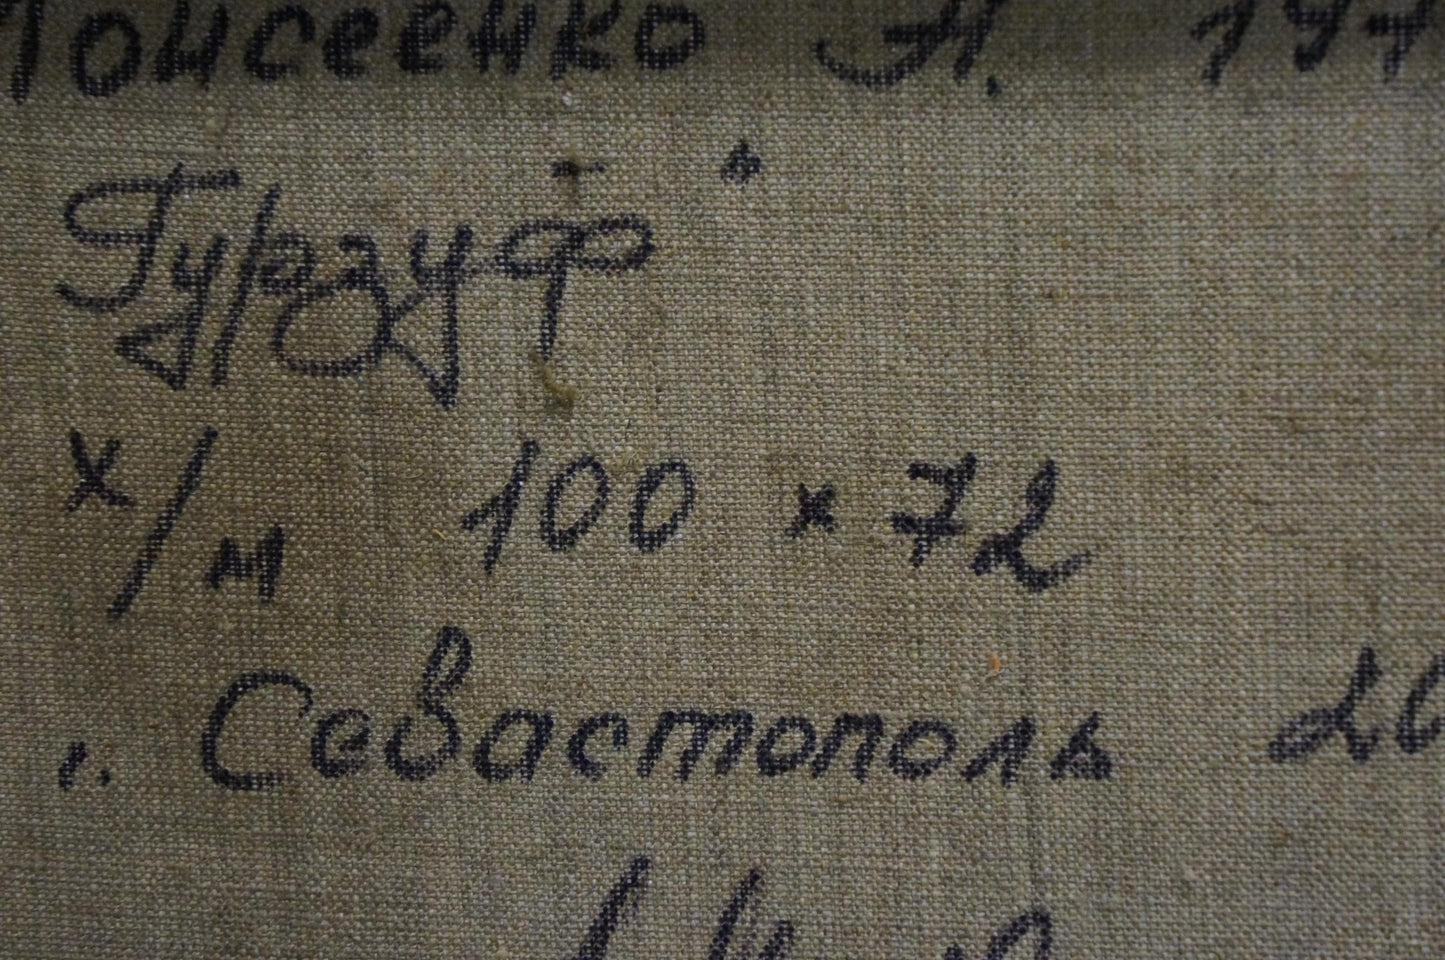 Моисеенко А. 197
Гурзуф
х/м 100 × 72
г. Севастополь